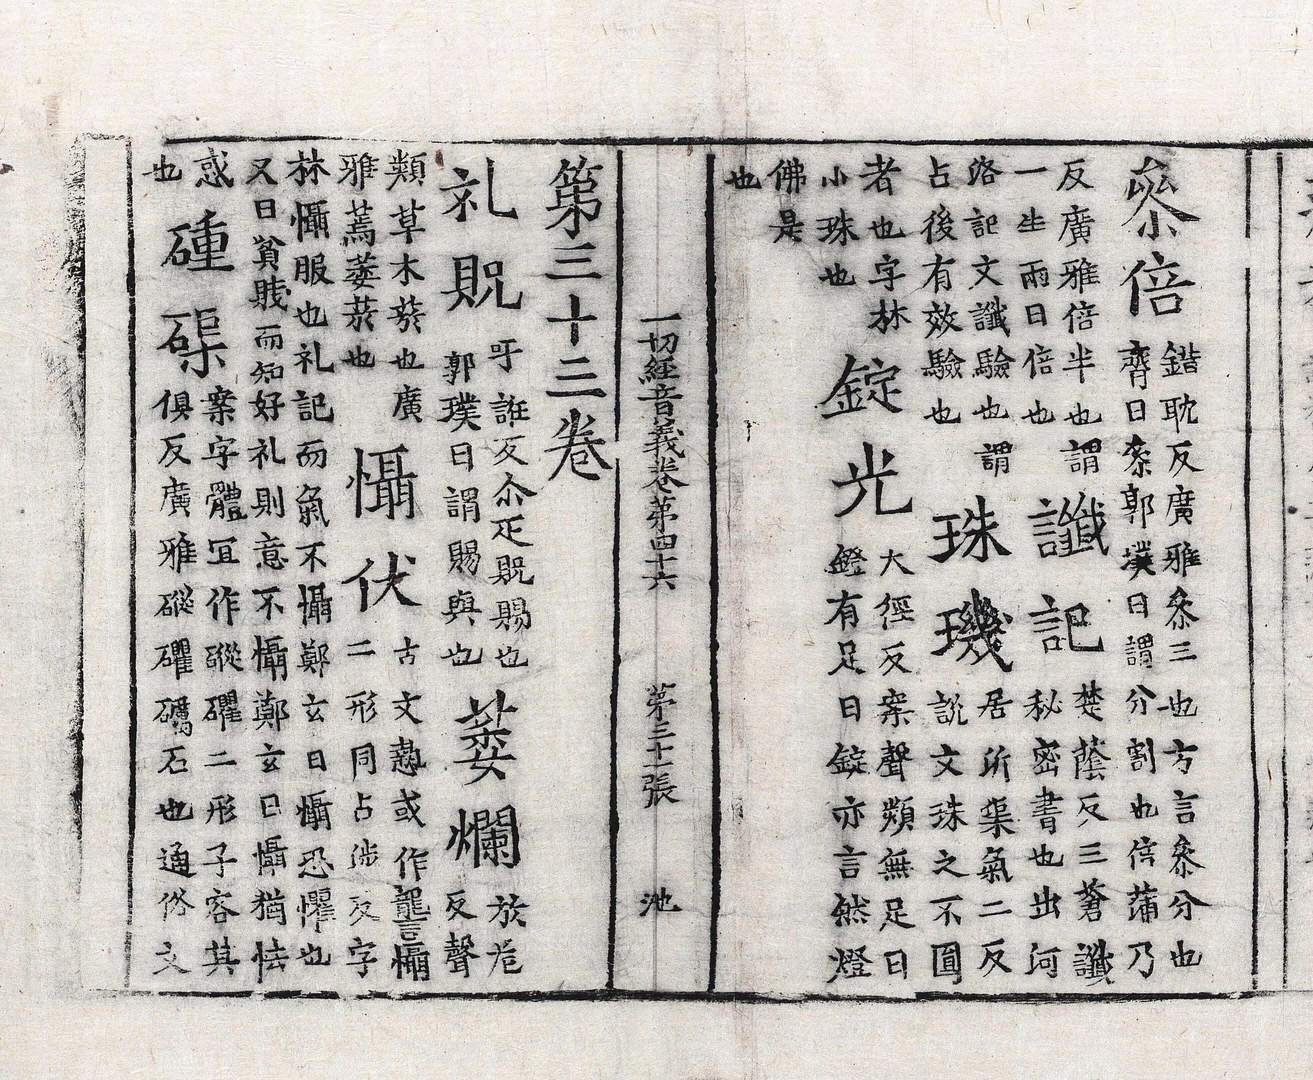 叅倍
錯耽反廣雅叅三也方言叅分也
齊曰叅郭璞曰謂分割也倍蒲乃
反廣雅倍半也謂
一生兩曰倍也
讖記
楚蔭反三蒼讖
秘密書也出河
洛記文讖驗也謂
占後有效驗也
珠璣
居沂渠氣二反
說文珠之不圓
者也字林
小珠也
錠光
大徑反案聲類無足曰
鐙有足曰錠亦言然燈
佛是
也
一切經音義卷第四十六 第三十一張 池
第三十三卷
礼貺
吁誑反尒疋貺賜也
郭璞曰謂賜與也
萎爛
於危
反聲
類草木菸也廣
雅蔫萎菸也
懾伏
古文慹或作讋懾
二形同占涉反字
林懾服也礼記而氣不懾鄭玄曰懾恐懼也
又曰貧賤而知好礼則意不懾鄭玄曰懾猶怯
惑
也
磲
案字體冝作磫𥗫二形子容其
俱反廣雅磫𥗫礪石也通俗文